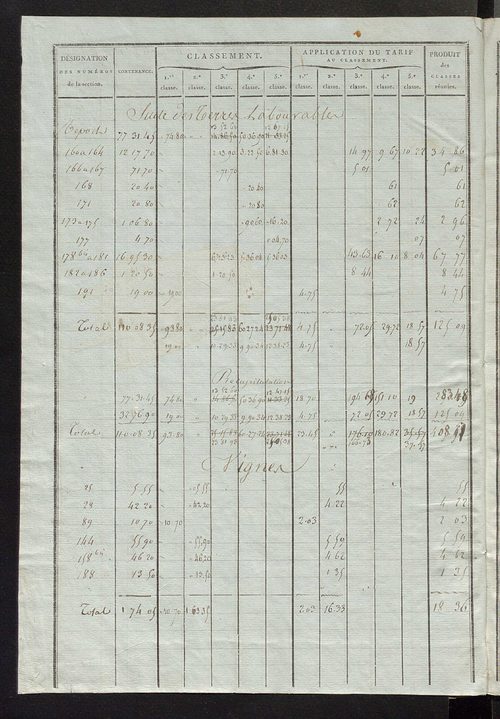 DÉSIGNATION DES NUMÉROS de la section. CONTENANCE. CLASSEMENT. APPLICATION DU TARIF AU CLASSEMENT. PRODUIT des CLASSES réunies.
1.re classe. 2.e classe. 3.e classe. 4.e classe. 5.e classe. 1.re classe. 2.e classe. 3.e classe. 4.e classe. 5.e classe.
Suite des Terres Labourables
Report 77.31.45 74.80
160 a 164 12.17.70 2.13.90 3.22.50 6.81.30 14.97 9.67 10.22 34.86
166 a 167 71.70 71.70 5.01 5.01
168 20.40 20.40 61 61
171 20.80 20.80 62 62
173 a 175 1.06.80 90.60 16.20 2.72 24 2.96
177 4.70 04.70 07 07
178 bis a 181 16.95.30 5.36.00 43.63 16.10 8.04 67.77
182 a 186 1.20.50 1.20.50 8.44 8.44
191 19.00 19.00 4.75 4.75
Total 110.08.35 93.80 4.75 72.05 29.72 18.57 125.09
19.00 10.29.33 9.90.34 12.38.23 4.75 18.57
Recapitulation
77.31.45 74.80 50.36.90 18.70 151.10 19
32.76.90 19.00 10.29.33 9.90.34 12.38.23 4.75 72.05 29.72 18.57 125.09
Total 110.08.35 93.80 60.27.24 23.45 180.82
Vignes
25 5.55 5.55 55 55
28 42.20 42.20 4.22 4.22
89 10.70 10.70 2.03 2.03
144 55.90 55.90 5.59 5.59
158 bis 46.20 46.20 4.62 4.62
188 13.50 13.50 1.35 1.35
Total 1.74.05 10.70 1.63.35 2.03 16.33 18.36